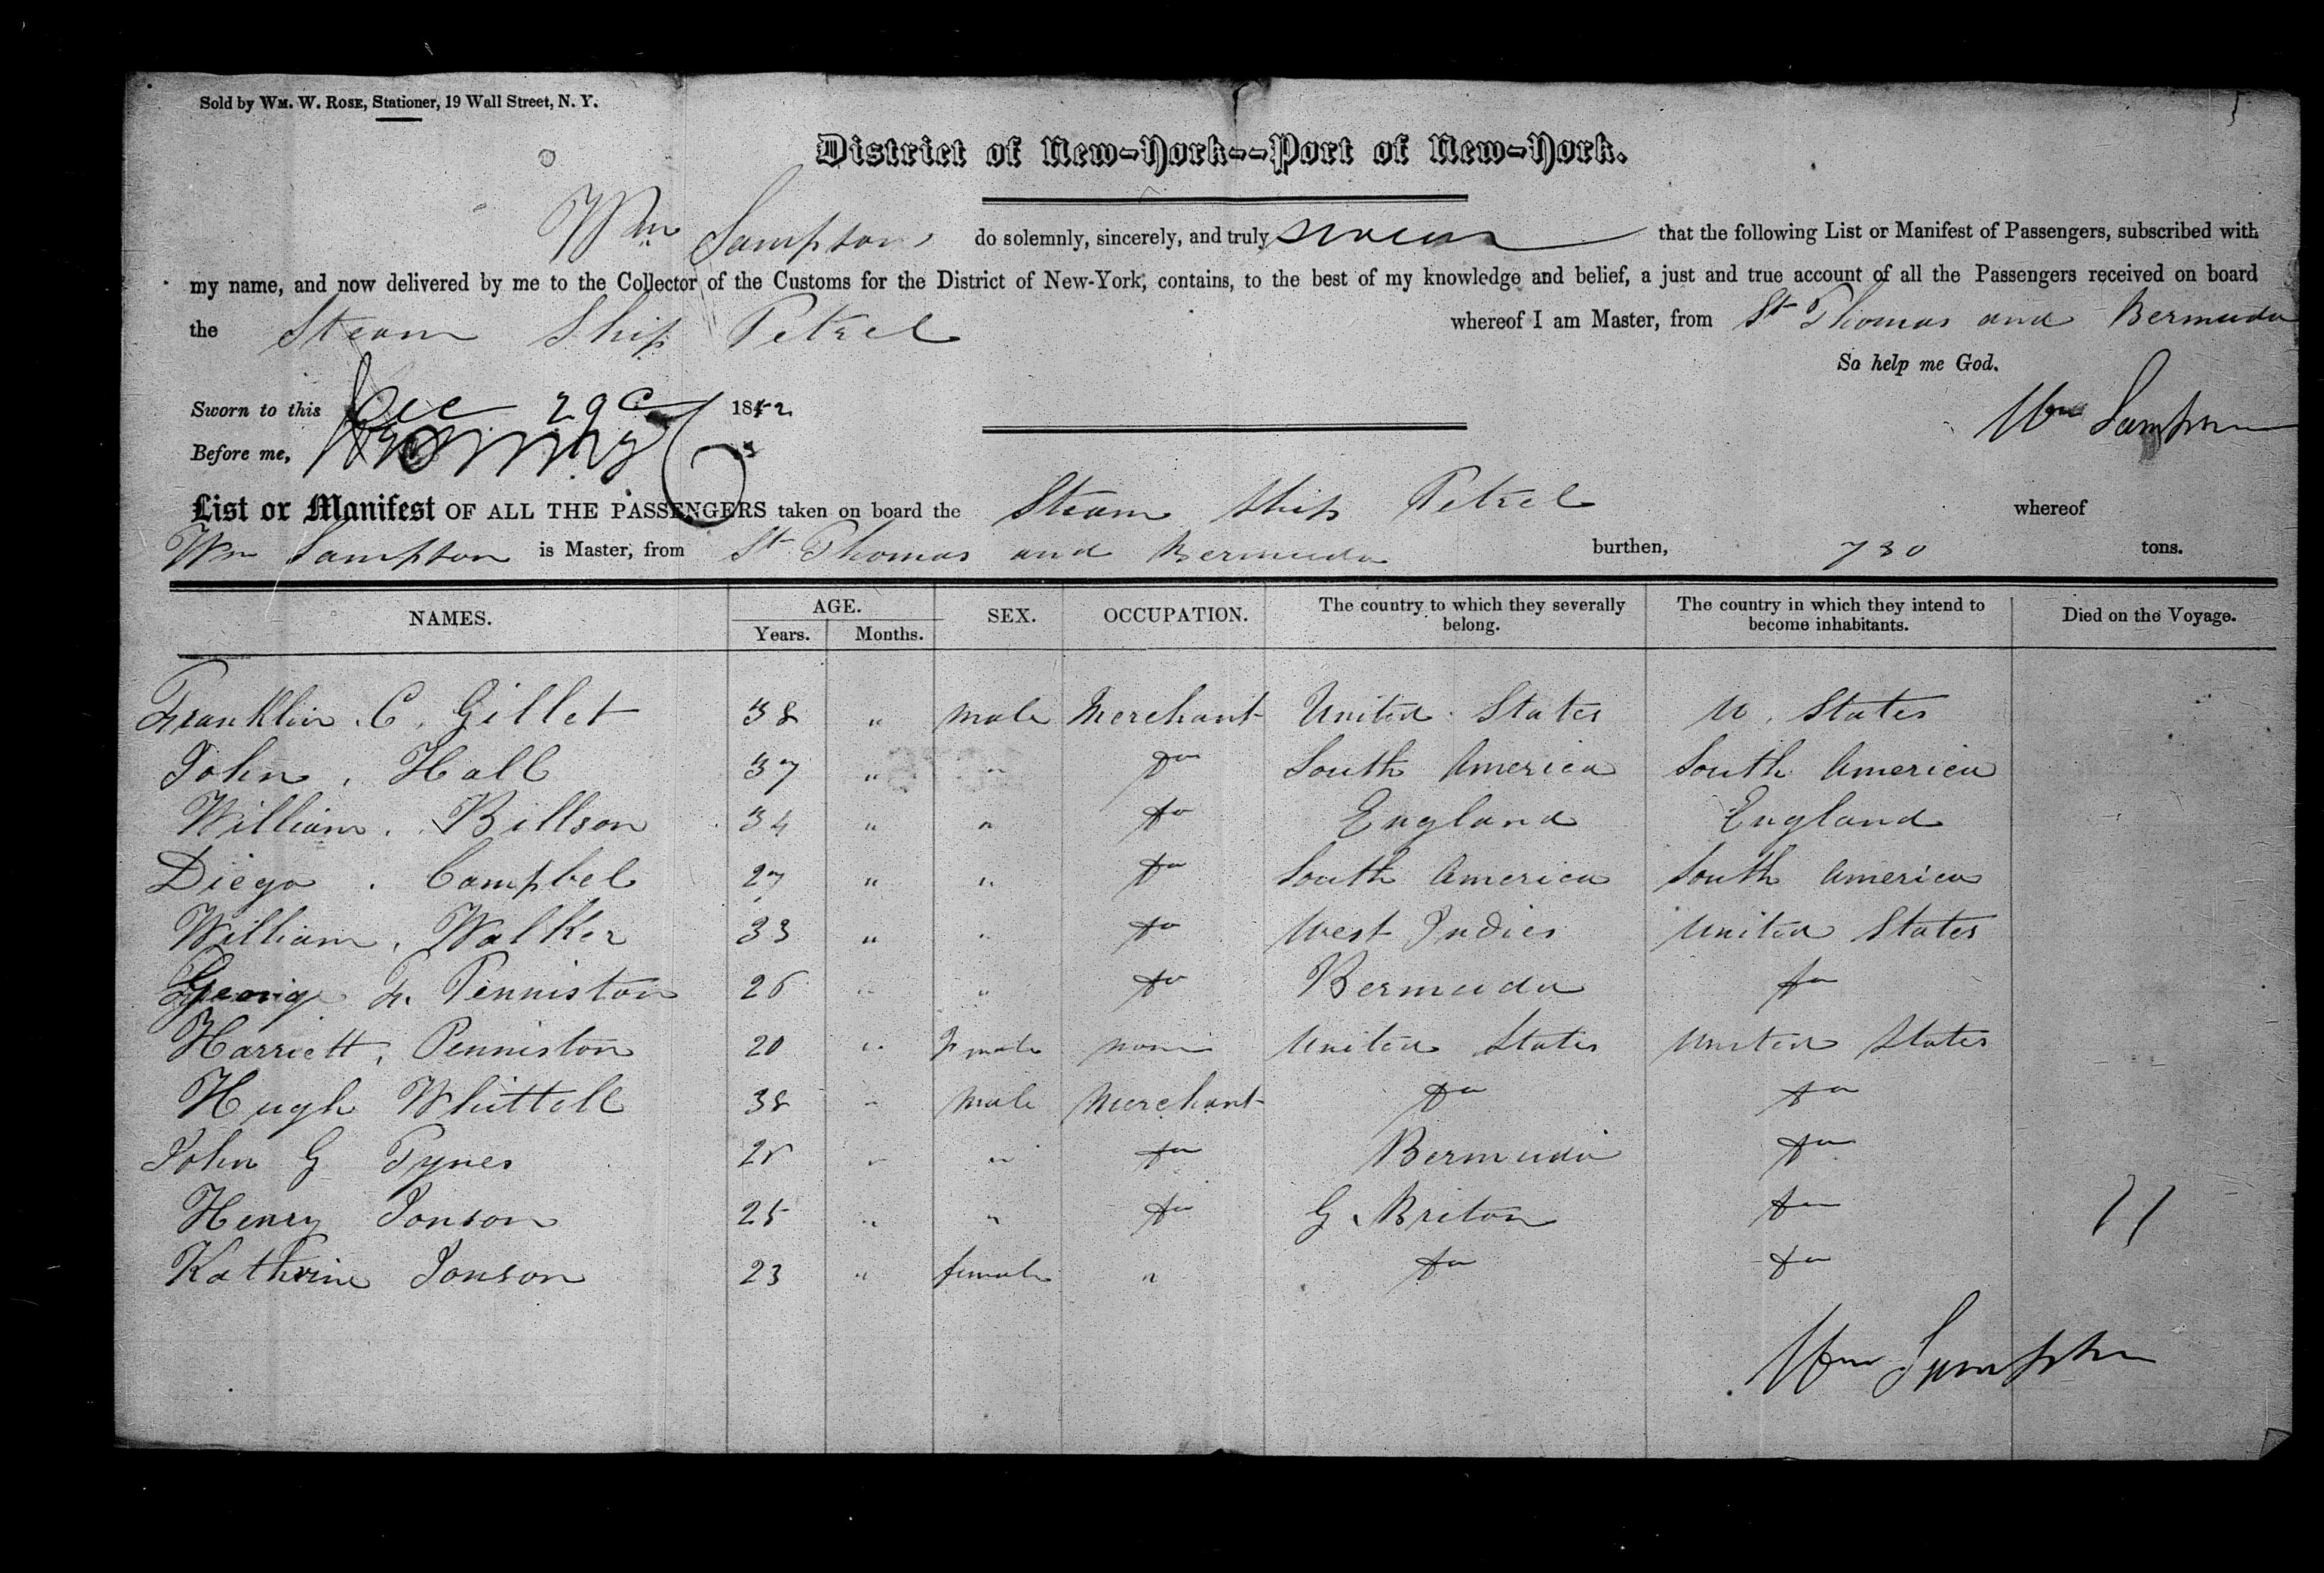 Sold by WM. W. ROSE, Stationer, 19 Wall Street, N. Y.
District of New-York--Port of New-York.
Wm Sampson do solemnly, sincerely, and truly swear that the following List or Manifest of Passengers, subscribed with
my name, and now delivered by me to the Collector of the Customs for the District of New-York, contains, to the best of my knowledge and belief, a just and true account of all the Passengers received on board
the Steam Ship Petrel whereof I am Master, from St Thomas and Bermuda
So help me God.
Sworn to this Dec 29 1852
Wm Sampson
Before me,
List or Manifest OF ALL THE PASSENGERS taken on board the Steam Ship Petrel whereof
Wm Sampson is Master, from St Thomas and Bermuda burthen, 730 tons.
NAMES. AGE. Years. Months. SEX. OCCUPATION. The country to which they severally belong. The country in which they intend to become inhabitants. Died on the Voyage.
Franklin. C. Gillet 38 " male Merchant United States U. States
John. Hall 37 " " Do South America South America
William. Billson 34 " " Do England England
Diego. Campbel 27 " " Do South America South America
William. Walker 33 " " Do West Indies United States
George F. Penniston 26 " " Do Bermuda Do
Harriett. Penniston 20 " Female none United States United States
Hugh Whittell 38 " male Merchant Do Do
John G Tynes 25 " " Do Bermuda Do
Henry Jonson 25 " " Do G. Briton Do
11
Kathrine Jonson 23 " female " Do Do
Wm Sampson